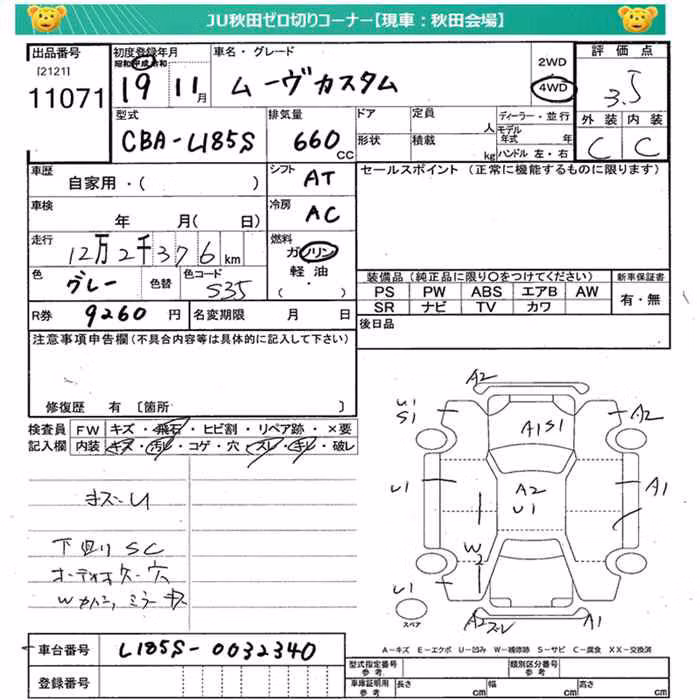 JU秋田ゼロ切りコーナー【現車：秋田会場】
出品番号
[2121]
11071
初度登録年月
昭和 平成 令和
19 11月
車名・グレード
ムーヴカスタム
2WD
4WD
評価点
3.5
外装 内装
C C
型式
CBA-L185S
排気量
660
CC
ドア
定員
人
形状
積載
kg
ディーラー・並行
モデル年式 年
ハンドル 左・右
車歴
自家用・( )
シフト
AT
セールスポイント (正常に機能するものに限ります)
車検
年 月( 日)
冷房
AC
走行
12万2千376km
燃料
ガソリン
軽油
( ・ )
色
グレー
色替
色コード
S35
装備品 (純正品に限り〇をつけてください)
新車保証書
PS PW ABS エアB AW
有・無
SR ナビ TV カワ
R券 9260 円
名変期限 月 日
後日品
注意事項申告欄 (不具合内容等は具体的に記入して下さい)
修復歴 有 [箇所 ]
検査員記入欄
FW キズ・飛石・ヒビ割・リペア跡・×要
内装 キズ・汚レ・コゲ・穴・スレ・キレ・破レ
キズ-U
下回りSC
A2
U1
S1
A1S1
A2
U1
A2
U1
A1
W2
U1
スペア
A2
スレ
A1
A-キズ E-エクボ U-凹み W-補修跡 S-サビ C-腐食 XX-交換済
車台番号
L185S-0032340
登録番号
型式指定番号 参考
類別区分番号 参考
車庫証明用 参考
長さ cm
幅 cm
高さ cm